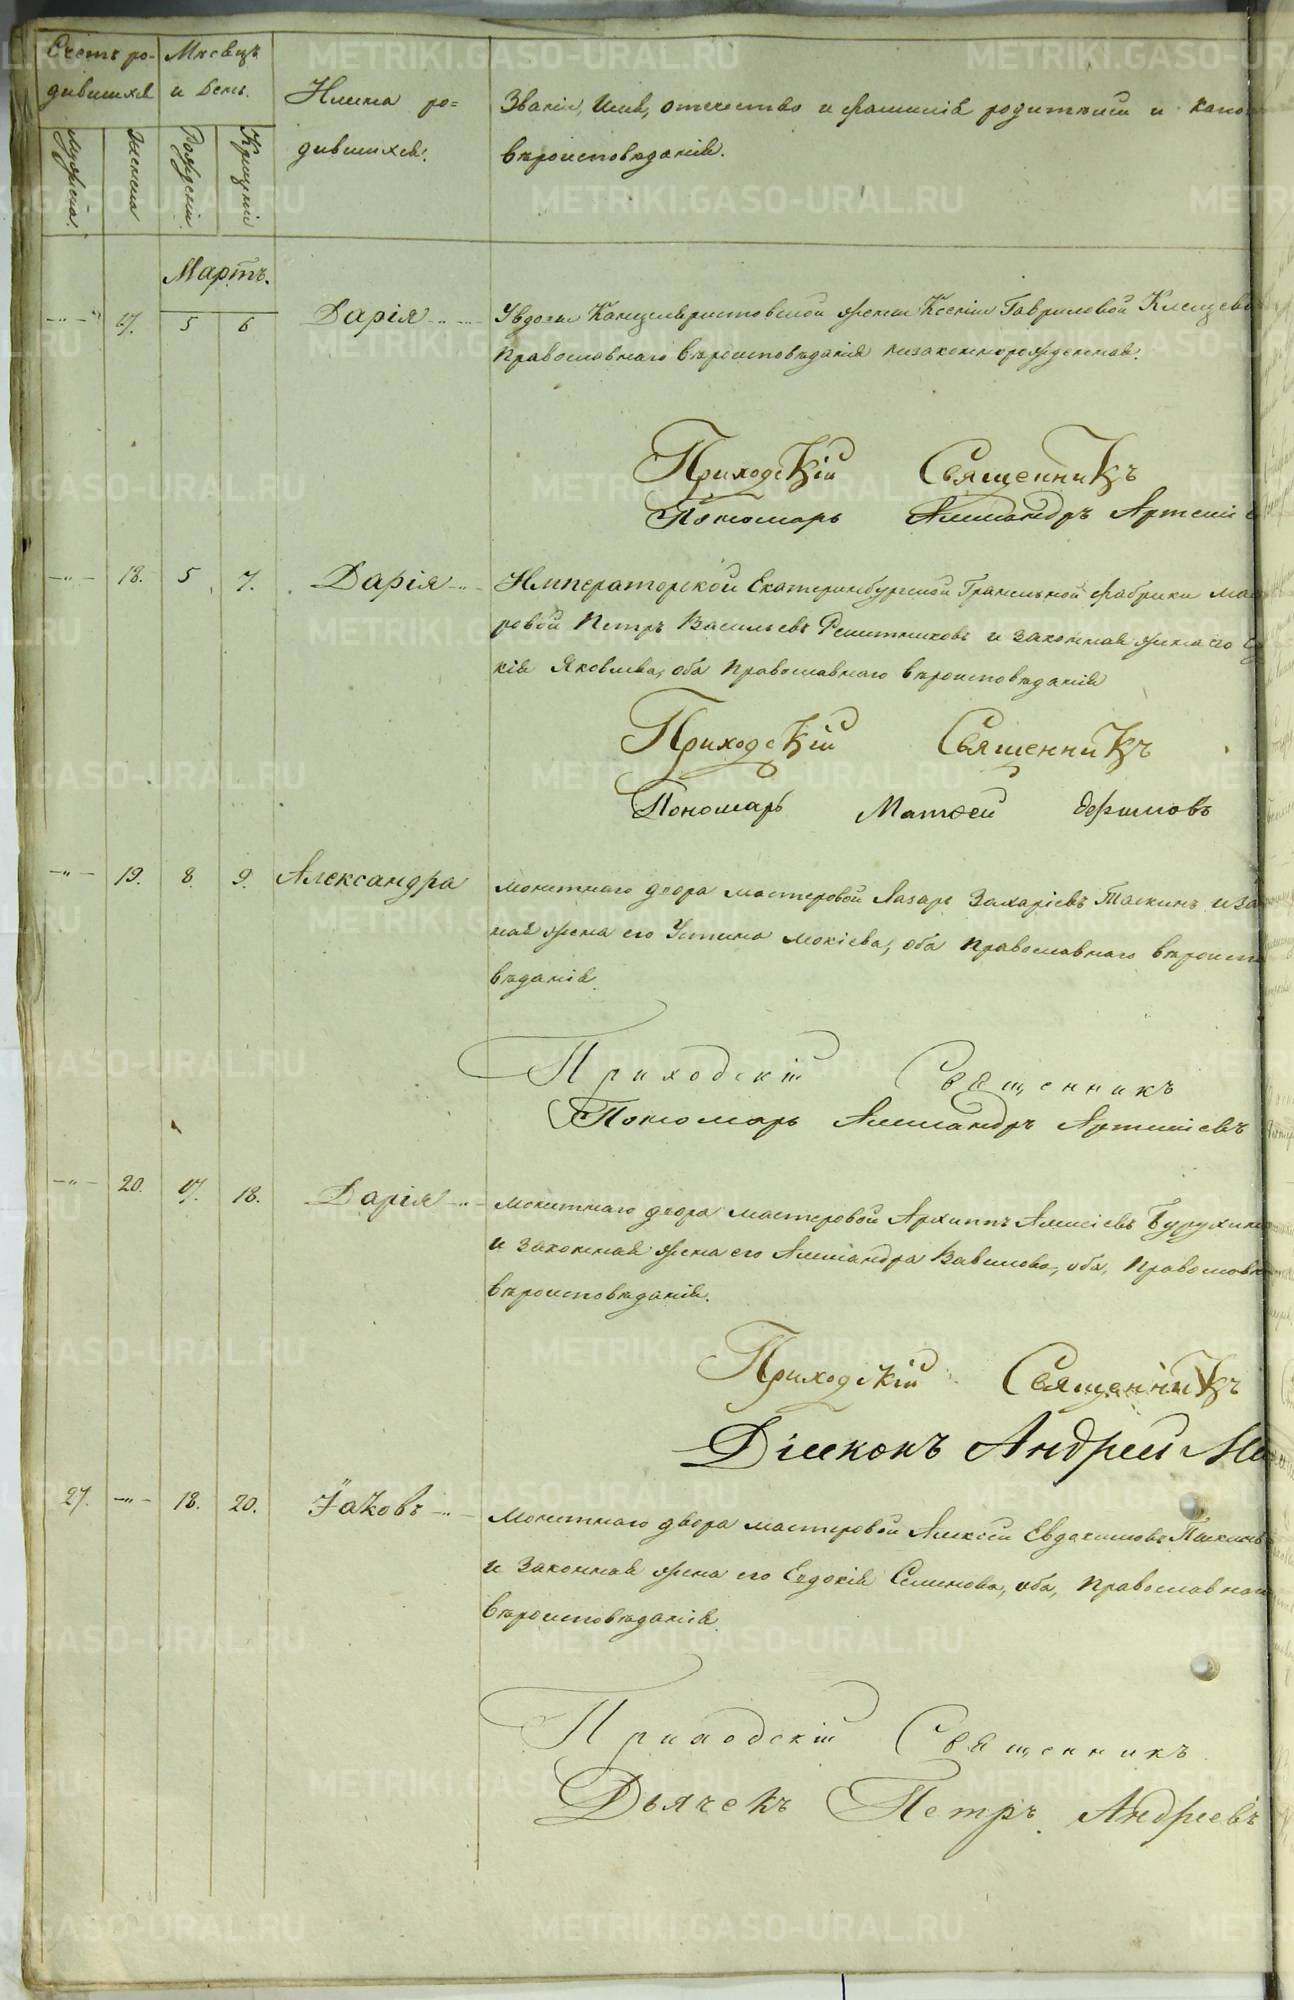 Счетъ ро-
дившихся
Мѣсяцъ
и День.
Имена ро=
дившихся.
Званіе, Имя, отчество и фамилія родителей и како
вѣроисповѣданія.
Мужеска.
Женска
Рожденія
Крещенія
Мартъ.
-"- 17. 5 6 Дарія У вдовы Канцеляристовской жены Ксеніи Гавриловой Клещево
Православнаго вѣроисповѣданія незаконнорожденная.
Приходскій Священникъ
Пономарь Александръ Артеміе
-"- 18. 5 7. Дарія Императорской Екатеринбургской Гранильной фабрики мас
ровой Петръ Васильевъ Решетниковъ и законная жена его
кія Яковлева, оба Православнаго вѣроисповѣданія
Приходскій Священникъ
Пономарь Матѳей Ефимовъ
-"- 19. 8. 9. Александра Монетнаго двора мастеровой Лазарь Захаріевъ Таскинъ и за
ная жена его Устина Мокіева, оба Православнаго вѣроиспо
вѣданія.
Приходскій Священникъ
Пономарь Александръ Артеміевъ
-"- 20. 17. 18. Дарія Монетнаго двора мастеровой Архиппъ Алексіевъ Бурухин
и законная жена его Александра Вавилова, оба, Православн
вѣроисповѣданія.
Приходскій Священникъ
Діаконъ Андрей
27. -"- 18. 20. Іаковъ Монетнаго двора мастеровой Алексѣй Евдакимовъ
и законная жена его Евдокія Семенова, оба, Православнаг
вѣроисповѣданія.
Приходскій Священникъ
Дьячекъ Петръ Андреевъ
METRIKI.GASO-URAL.RU